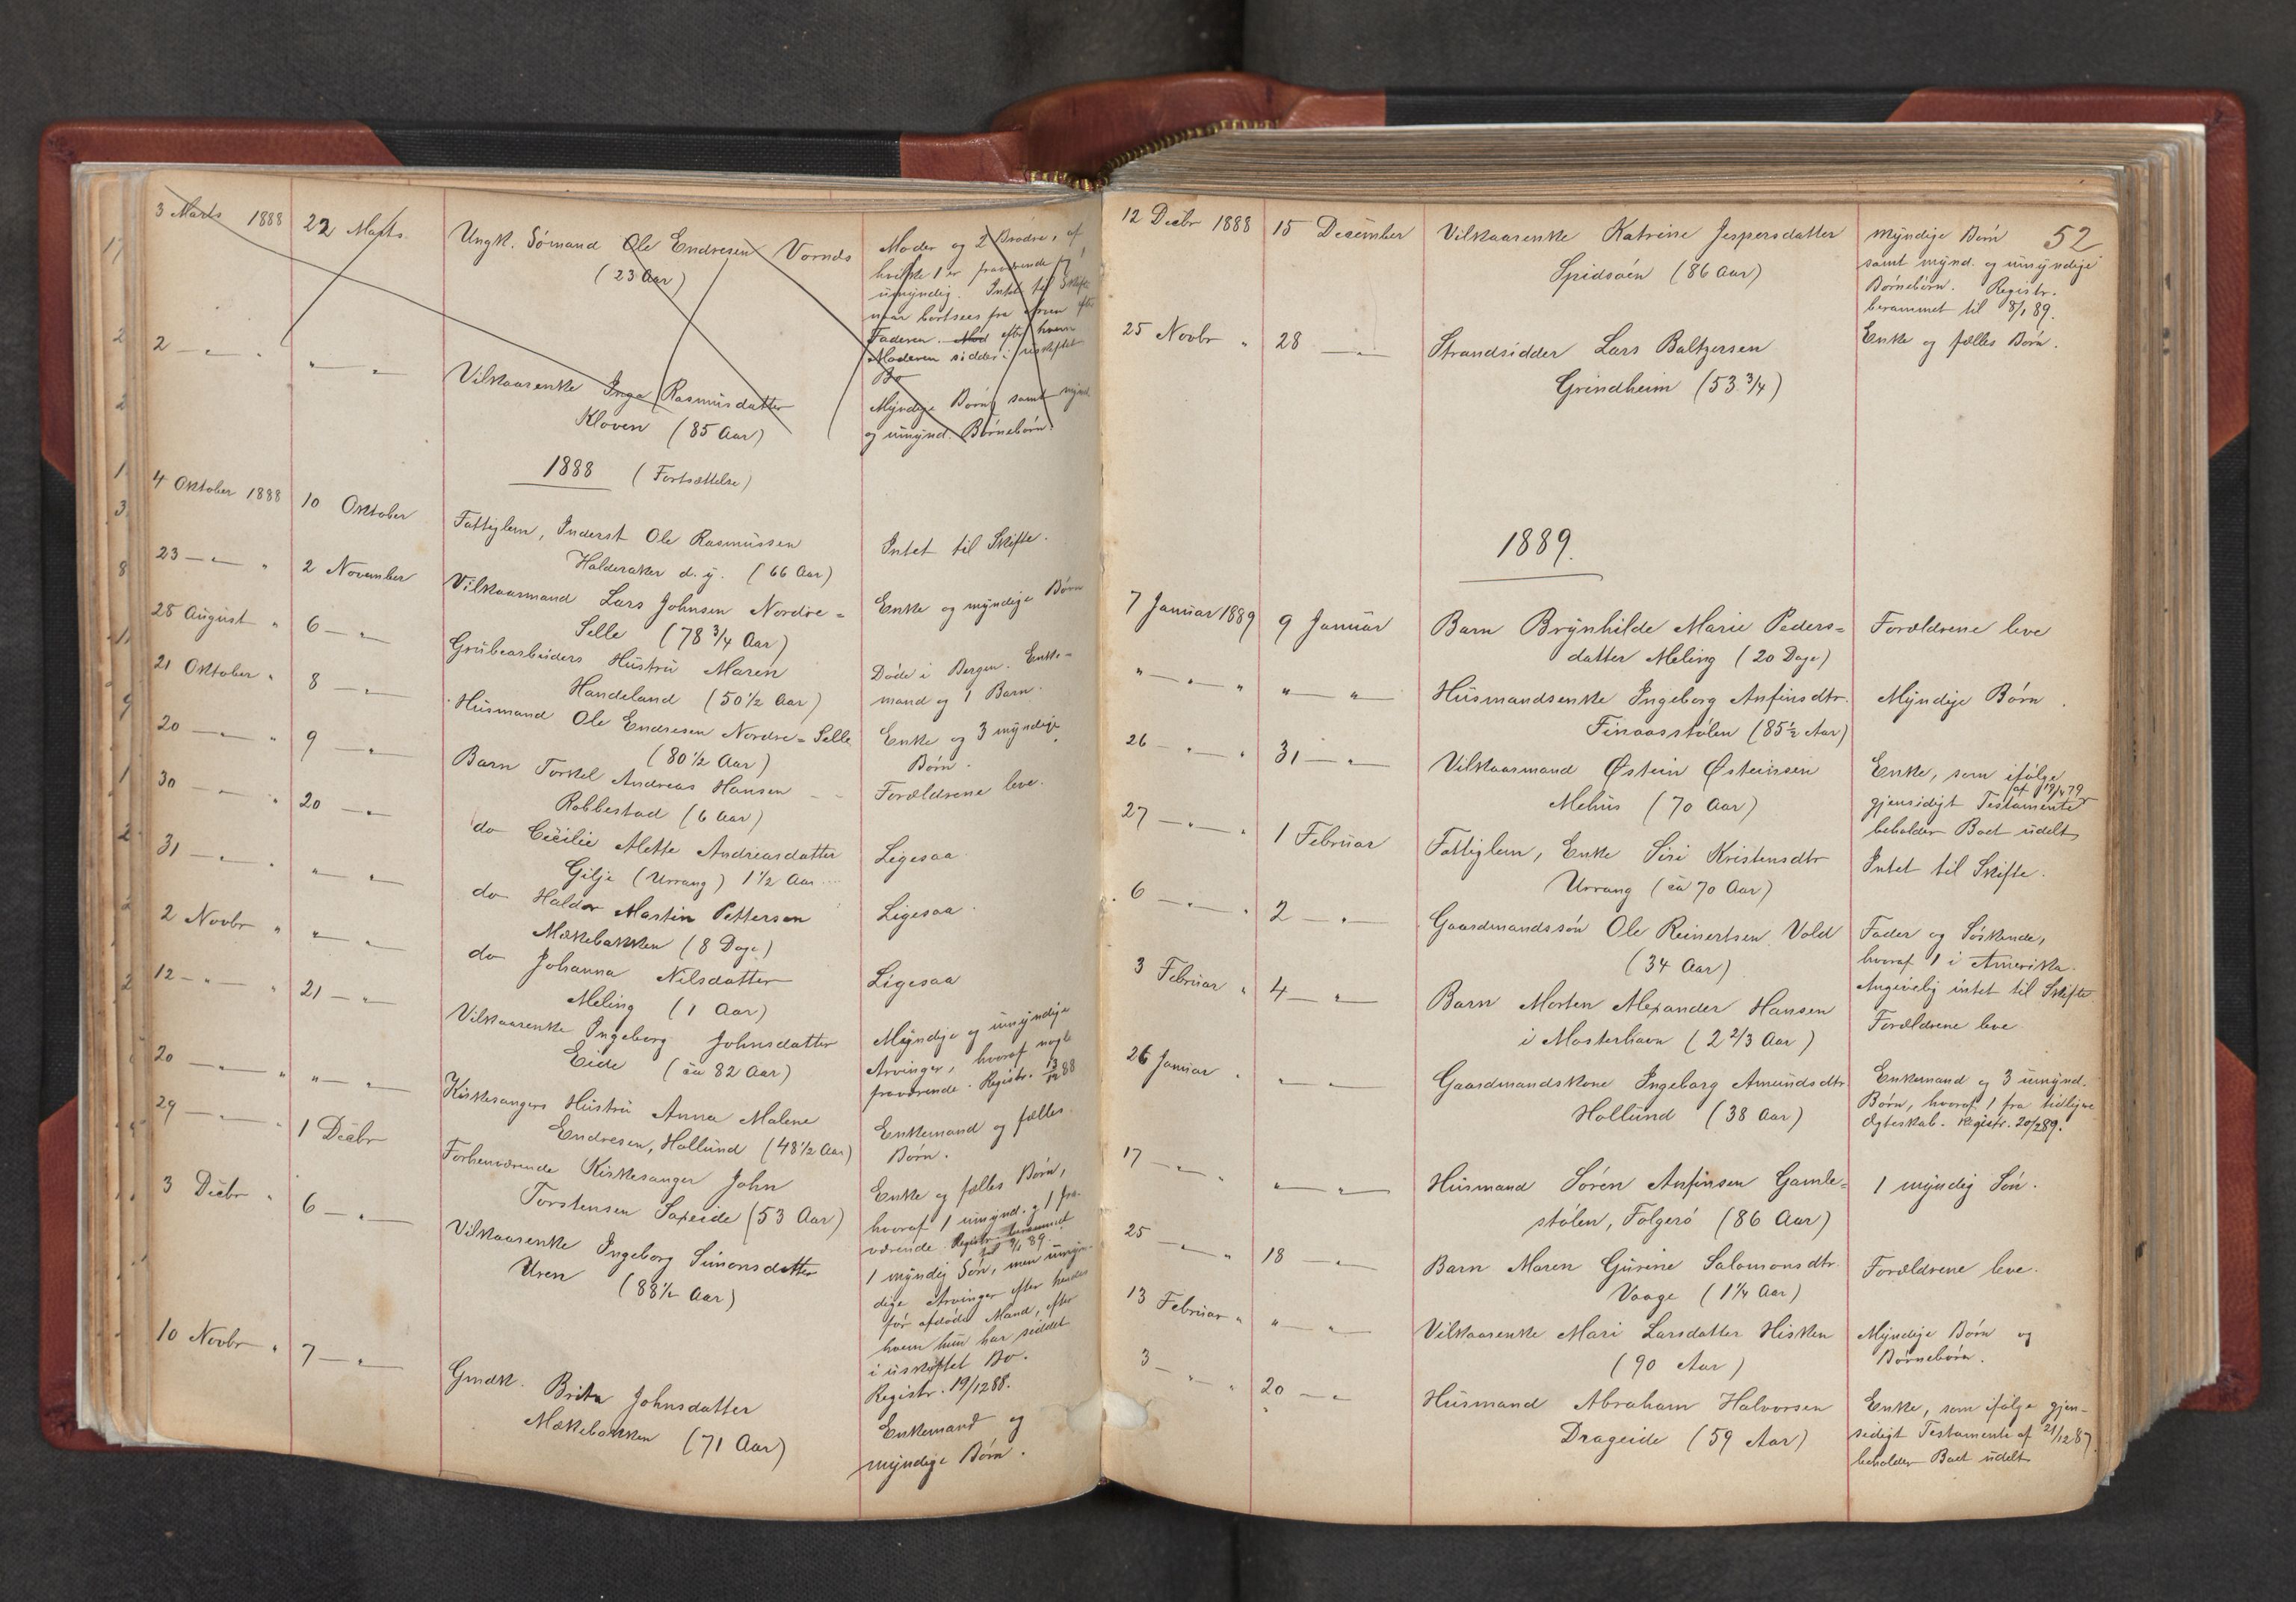 3 Marts 1888 22 Marts. Ungk. Sømand Ole Endresen Vornds Moder og 2 Brødre, af
(23 Aar) hvilke 1 er fraværende og 1
umyndig. Intet til Skifte
naar bortsees fra Arven efter
Faderen. Mod efter hvem
Moderen sidder i uskiftet
Bo
2 — " — " " — " Vilkaarsenke Inga Rasmusdatter Myndige Børn samt mynd.
Kloven (85 Aar) og umynd. Børnebørn.
1888 (Fortsættelse)
4 Oktober 1888 10 Oktober Fattiglem, Inderst Ole Rasmussen Intet til Skifte.
Halderaker d. y. (66 Aar)
23 — " — " 2 November Vilkaarmand Lars Johnsen Nordre- Enke og myndige Børn
Selle (78 3/4 Aar)
28 August " 6 — " — Grubearbeiders Hustru Maren Døde i Bergen. Enke-
Handeland (50 1/2 Aar) mand og 1 Barn.
21 Oktober " 8 — " — Husmand Ole Endresen Nordre-Selle Enke og 3 myndige
(80 1/2 Aar) Børn.
20 — " — " 9 — " — Barn Torkel Andreas Hansen Forældrene leve.
Robbestad (6 Aar)
30 — " — " 20 — " — do Cecilie Mette Andreasdatter Ligesaa
Gilje (Urrang) 1 1/2 Aar
31 — " — " " — " do Haldor Martin Pettersen Ligesaa
Mækebakken (8 Dage)
2 Novbr " " — " do Johanna Nilsdatter Ligesaa
Meling (1 Aar)
12 — " — " 21 — " — Vilkaarsenke Ingeborg Johnsdatter Myndige og umyndige
Eide (ca 82 Aar) Arvinger, hvoraf nogle
fraværende. Registr. 13/12 88
20 — " — " " — " Kirkesangers Hustru Anna Malene Enkemand og fælles
Endresen, Hollund (48 1/2 Aar) Børn.
29 — " — " 1 Decbr Forhenværende Kirkesanger John Enke og fælles Børn,
Torstensen Søxeide (53 Aar) hvoraf 1 umynd. og 1 fra-
værende. Registr. berammet
til 9/1 89.
3 Decbr " 6 — " — Vilkaarsenke Ingeborg Simonsdatter 1 myndig Søn, men umyn-
Uren (88 1/2 Aar) dige Arvinger efter hendes
før afdøde Mand, efter
hvem hun har siddet
i uskiftet Bo.
Registr. 19/12 88.
10 Novbr " 7 — " — Gmdk. Brita Johnsdatter Enkemand og
Mækebakken (71 Aar) myndige Børn.
52
12 Decbr 1888 15 December Vilkaarsenke Katrine Jespersdatter Myndige Børn
Spidsøen (86 Aar) samt mynd. og umyndige
Børnebørn. Registr.
berammet til 8/1 89.
25 Novbr " 28 — " — Strandsidder Lars Baltzersen Enke og fælles Børn.
Grindheim (53 3/4)
1889.
7 Januar 1889 9 Januar Barn Brynhilde Marie Peders- Forældrene leve
datter Meling (20 Dage)
" — " — " " — " Husmandsenke Ingeborg Anfinsdtr. Myndige Børn.
Finaasstølen (85 1/2 Aar)
26 — " — " 31 — " — Vilkaarmand Østein Østeinsen Enke, som ifølge
Mehus (70 Aar) gjensidigt Testamente af 18/4 79
beholder Boet udelt
27 — " — " 1 Februar Fattiglem, Enke Siri Kristensdtr Intet til Skifte.
Urrang (ca 70 Aar)
6 — " — " 2 — " — Gaardmandssøn Ole Reinertsen Vold Fader og Søskende,
(34 Aar) hvoraf 1 i Amerika.
Angivelig intet til Skifte
3 Februar " 4 — " — Barn Morten Alexander Hansen Forældrene leve
i Mosterhavn (2 2/3 Aar)
26 Januar " — " — Gaardmandskone Ingeborg Amundsdtr Enkemand og 3 umynd.
Hollund (38 Aar) Børn, hvoraf 1 fra tidligere
Ægteskab. Registr. 20/2 89.
17 — " — " " — " Husmand Søren Anfinsen Gamle- 1 myndig Søn.
stølen, Folgerø (86 Aar)
25 — " — " 18 — " — Barn Maren Gurine Salomonsdtr. Forældrene leve.
Vaage (1 1/4 Aar)
13 Februar " " — " Vilkaarsenke Mari Larsdatter Hisken Myndige Børn og
(90 Aar) Børnebørn.
3 — " — " 20 — " — Husmand Abraham Halvorsen Enke, som ifølge gjen-
Drageide (59 Aar) sidigt Testamente af 21/12 87
beholder Boet udelt